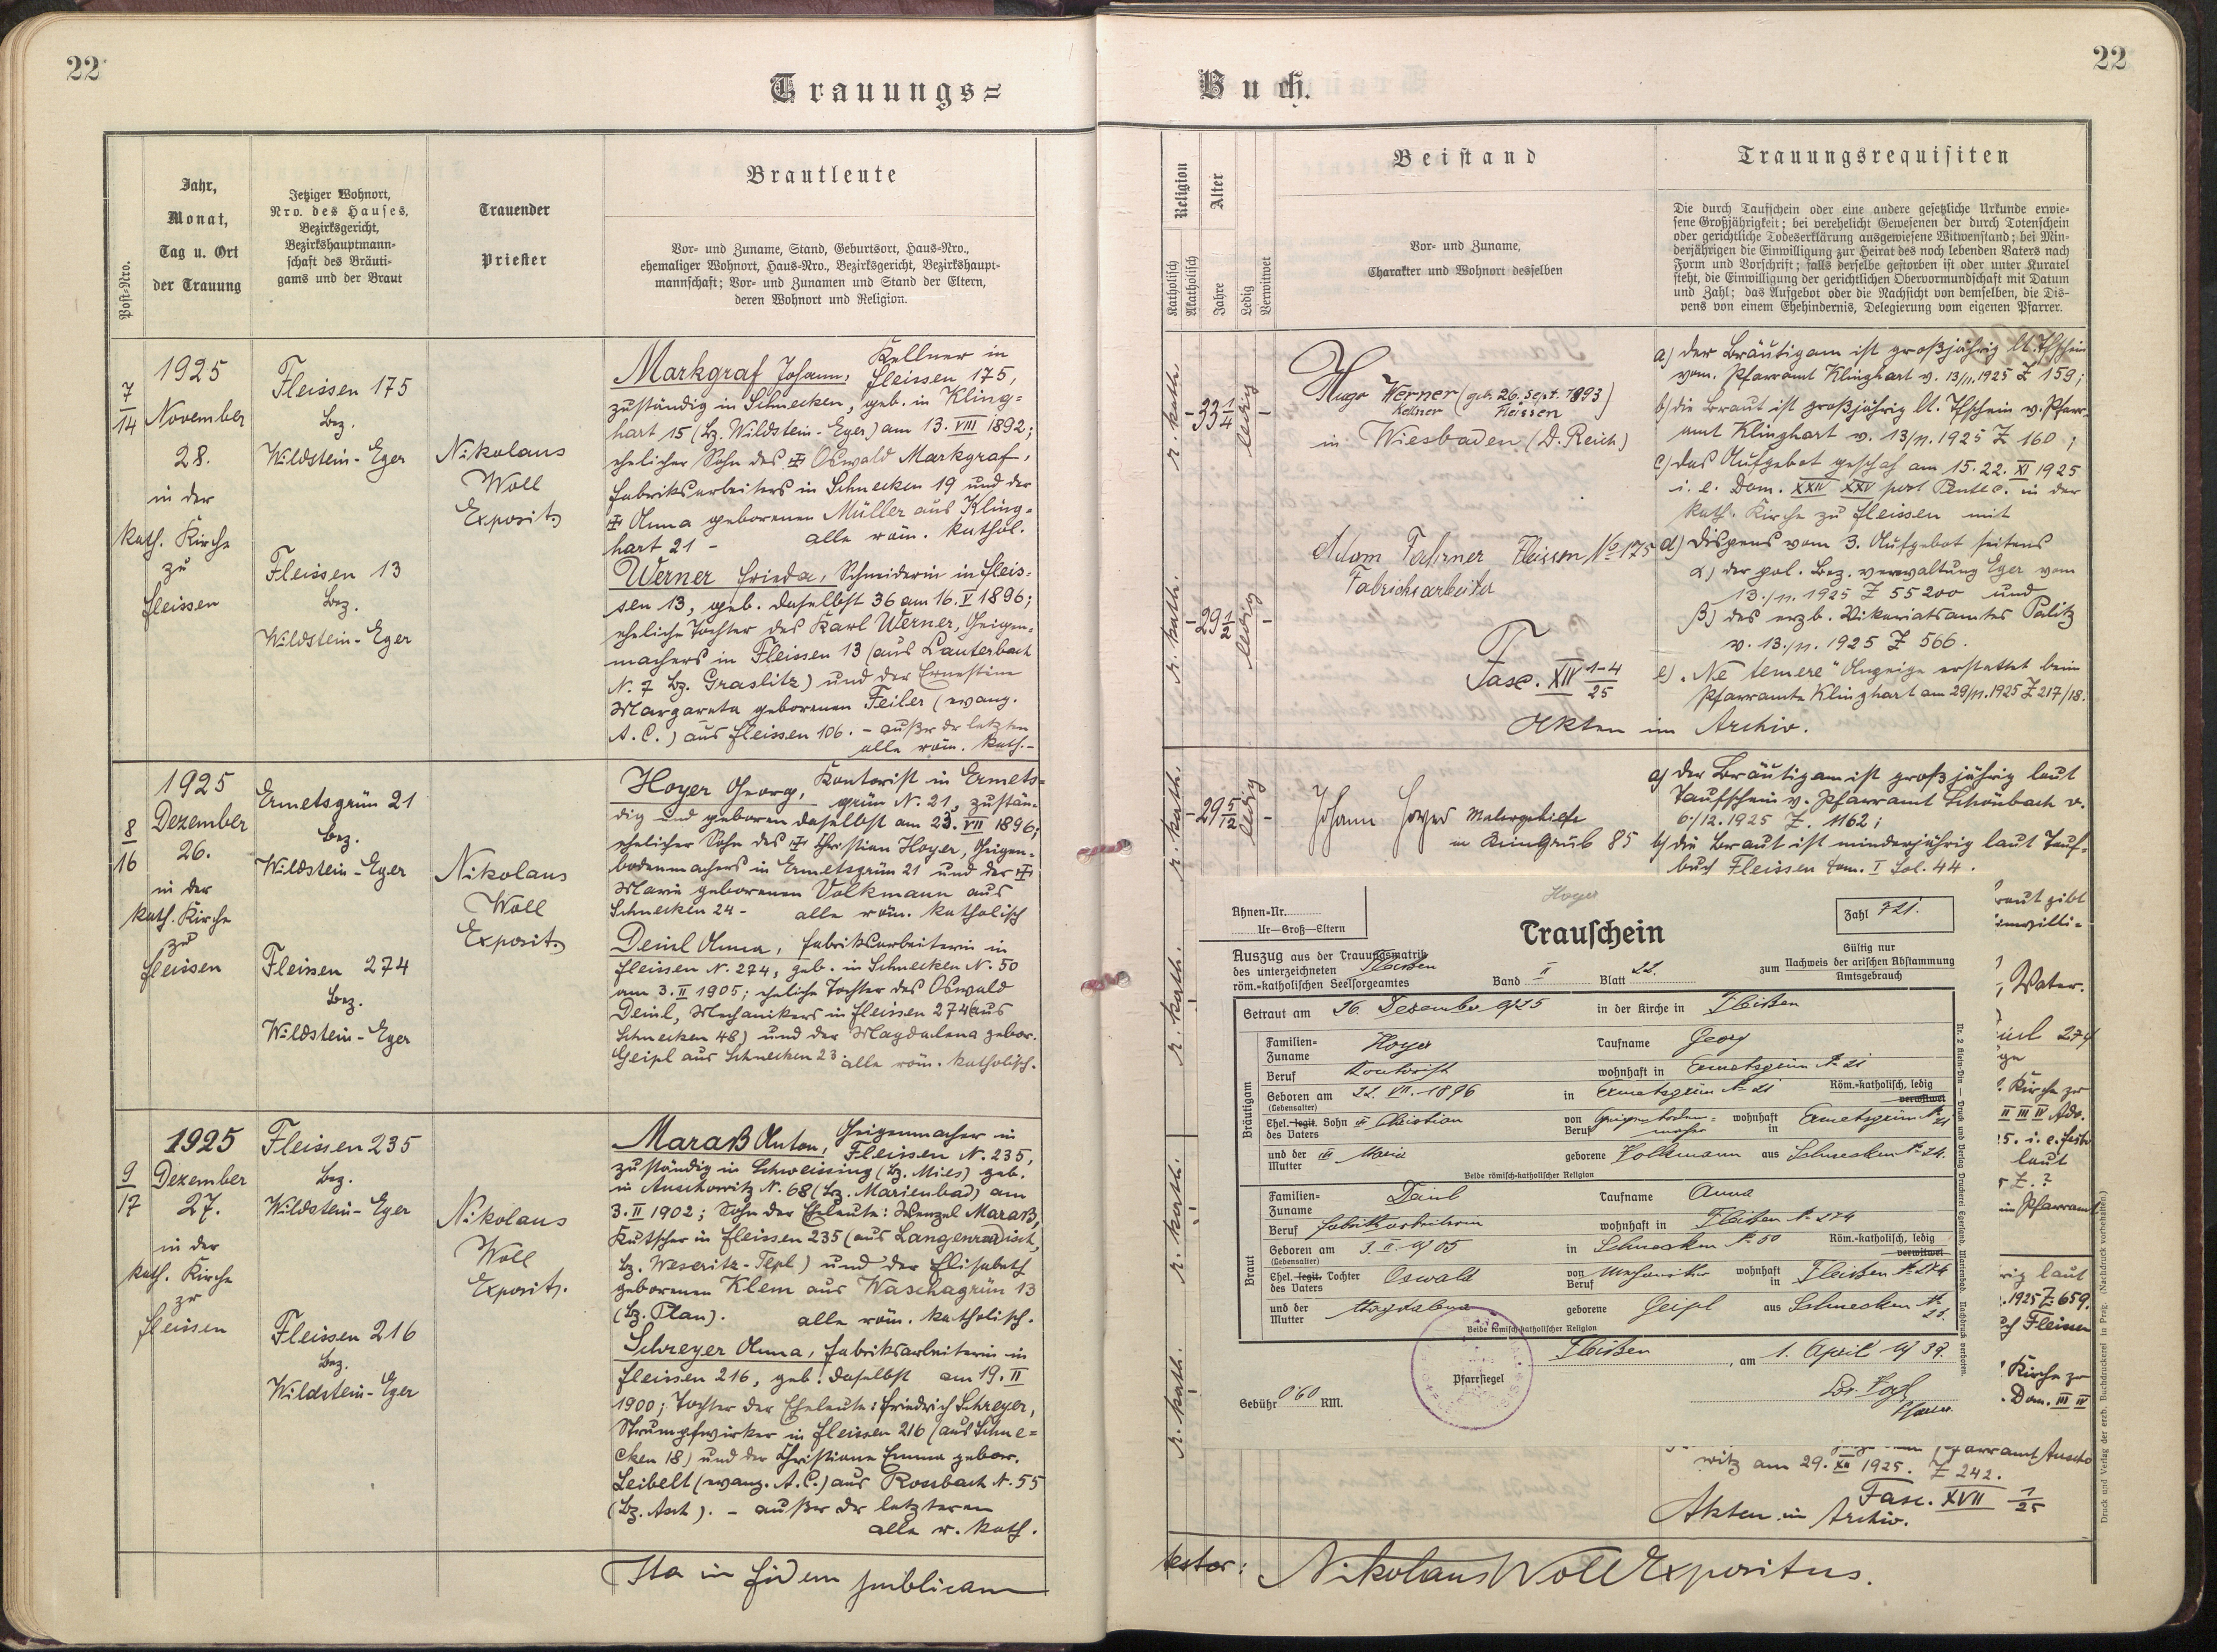 22
Trauungs=
Post=Nro.
Jahr,
Monat,
Tag u. Ort
der Trauung
Jetziger Wohnort,
Nro. des Hauses,
Bezirksgericht,
Bezirkshauptmann=
schaft des Bräuti=
gams und der Braut
Trauender
Priester
Brautleute
Vor= und Zuname, Stand, Geburtsort, Haus=Nro.,
ehemaliger Wohnort, Haus=Nro., Bezirksgericht, Bezirkshaupt=
mannschaft; Vor= und Zunamen und Stand der Eltern,
deren Wohnort und Religion.
7
14
1925
November
28.
in der
kath. Kirche
zu
Fleissen
Fleissen 175
Bez.
Wildstein-Eger
Fleissen 13
Bez.
Wildstein-Eger
Nikolaus
Woll
Exposit.
Markgraf Johann, Kellner in
Fleissen 175,
zuständig in Schnecken, geb. in Kling=
hart 15 (Bz. Wildstein-Eger) am 13. VIII 1892;
ehelicher Sohn des ✠ Oswald Markgraf,
Fabriksarbeiters in Schnecken 19 und der
✠ Anna geborenen Müller aus Kling=
hart 21 - alle röm. kathol.
Werner Frieda, Schneiderin in Fleis=
sen 13, geb. daselbst 36 am 16. V 1896;
eheliche Tochter des Karl Werner, Geigen=
machers in Fleissen 13 (aus Lauterbach
N. 7 Bz. Graslitz) und der Ernestine
Margareta geborenen Feiler (evang.
A. C.) aus Fleissen 106. - außer der letzten
alle röm. kath.-
8
16
1925
Dezember
26.
in der
kath. Kirche
zu
Fleissen
Ermetsgrün 21
Bez.
Wildstein-Eger
Fleissen 274
Bez.
Wildstein-Eger
Nikolaus
Woll
Exposit.
Hoyer Georg, Kontorist in Ermets=
grün N. 21, zustän=
dig und geboren daselbst am 23. VII 1896;
ehelicher Sohn des ✠ Christian Hoyer, Geigen=
bodenmachers in Ermetsgrün 21 und der ✠
Marie geborenen Volkmann aus
Schnecken 24 - alle röm. katholisch
Deinl Anna, Fabriksarbeiterin in
Fleissen N. 274, geb. in Schnecken N. 50
am 3. II 1905; eheliche Tochter des Oswald
Deinl, Mechanikers in Fleissen 274 (aus
Schnecken 48) und der Magdalena gebor.
Geipl aus Schnecken 23. alle röm. katholisch.
9
17
1925
Dezember
27.
in der
kath. Kirche
zu
Fleissen
Fleissen 235
Bez.
Wildstein-Eger
Fleissen 216
Bez.
Wildstein-Eger
Nikolaus
Woll
Exposit.
Maraß Anton, Geigenmacher in
Fleissen N. 235,
zuständig in Schweissing (Bz. Mies) geb.
in Auschowitz N. 68 (Bz. Marienbad) am
3. II 1902; Sohn der Eheleute: Wenzel Maraß,
Kutscher in Fleissen 235 (aus Langenradist,
Bz. Weseritz-Tepl) und der Elisabeth
geborenen Klem aus Waschagrün 13
(Bz. Plan). alle röm. katholisch.
Schreyer Anna, Fabriksarbeiterin in
Fleissen 216, geb. daselbst am 19. II
1900; Tochter der Eheleute: Friedrich Schreyer,
Strumpfwirker in Fleissen 216 (aus Schne=
cken 18) und der Christiane Emma gebor.
Leibelt (evang. A. C.) aus Rossbach N. 55
(Bz. Asch). - außer der letzteren
alle r. kath.
Ita in fidem publicam
22
Buch.
Religion
Katholisch
Akatholisch
Alter
Jahre
Ledig
Verwitwet
Beistand
Vor= und Zuname,
Charakter und Wohnort desselben
Trauungsrequisiten
Die durch Taufschein oder eine andere gesetzliche Urkunde erwie=
sene Großjährigkeit; bei verehelicht Gewesenen der durch Totenschein
oder gerichtliche Todeserklärung ausgewiesene Witwenstand; bei Min=
derjährigen die Einwilligung zur Heirat des noch lebenden Vaters nach
Form und Vorschrift; falls derselbe gestorben ist oder unter Kuratel
steht, die Einwilligung der gerichtlichen Obervormundschaft mit Datum
und Zahl; das Aufgebot oder die Nachsicht von demselben, die Dis=
pens von einem Ehehindernis, Delegierung vom eigenen Pfarrer.
r. kath.
33 1/4
ledig
Hugo Werner (geb. 26. Sept. 1893)
Kellner Fleissen
in Wiesbaden (D. Reich)
r. kath.
29 1/2
ledig
Adam Fahrner Fleissen No 175
Fabriksarbeiter
Fasc. XIV 1-4
25
Akten im Archiv.
a) der Bräutigam ist großjährig lt. Tfschein
vom Pfarramt Klinghart v. 13/11. 1925 Z 159;
b) die Braut ist großjährig lt. Tfschein v. Pfarr=
amt Klinghart v. 13/11. 1925 Z 160;
c) das Aufgebot geschah am 15. 22. XI 1925
i. e. Dom. XXIV XXV post Pentec. in der
kath. Kirche zu Fleissen mit
d) Dispens vom 3. Aufgebot seitens
α) der pol. Bez. verwaltung Eger vom
13./11. 1925 Z 55200 und
β) des erzb. Vikariatsamtes Palitz
v. 13./11. 1925 Z 566.
e) „Ne temere" Anzeige erstattet beim
Pfarramte Klinghart am 29/11. 1925 Z 217/18.
r. kath.
29 5/12
ledig
Johann Hoyer Malergehilfe
in Steingrub 85
a) der Bräutigam ist großjährig laut
Taufschein v. Pfarramt Schönbach v.
6./12. 1925 Z. 1162;
b) die Braut ist minderjährig laut Tauf=
buch Fleissen tom. I fol. 44.
r. kath.
r. kath.
r. kath.
Hoyer
Ahnen=Nr.
Ur—Groß—Eltern
Trauschein
Zahl 721.
Gültig nur
zum Nachweis der arischen Abstammung
Amtsgebrauch
Auszug aus der Trauungsmatrik
des unterzeichneten Fleißen
röm.=katholischen Seelsorgeamtes Band II Blatt 22.
Getraut am 26. Dezember 1925 in der Kirche in Fleißen
Bräutigam
Familien=
Zuname Hoyer Taufname Georg
Beruf Kontorist wohnhaft in Ermetsgrün No 21
Geboren am 22. VII. 1896 in Ermetsgrün No 21 Röm.=katholisch, ledig
(Lebensalter) verwitwet
Ehel. legit. Sohn ✠ Christian von Beruf Geigenboden=macher wohnhaft in Ermetsgrün No 21
des Vaters
und der
Mutter ✠ Marie geborene Volkmann aus Schnecken No 24.
Beide römisch=katholischer Religion
Braut
Familien=
Zuname Deinl Taufname Anna
Beruf Fabriksarbeiterin wohnhaft in Fleißen No 274
Geboren am 3. II. 1905 in Schnecken No 50 Röm.=katholisch, ledig
(Lebensalter) verwitwet
Ehel. legit. Tochter Oswald von Beruf Mechaniker wohnhaft in Fleißen No 274
des Vaters
und der
Mutter Magdalena geborene Geipl aus Schnecken No 23.
Beide römisch=katholischer Religion
Fleißen, am 1. April 1939.
Pfarrsiegel
Gebühr 0'60 RM.
Pfarrer
Nr. 2 Klein-Din — Druck und Verlag Druckerei Egerland, Marienbad. Nachdruck verboten.
Vater.
274
Kirche zu
II III IV Adv.
laut
Z. ?
Pfarramt
laut
1925 Z. 659.
Fleissen
Kirche zu
Dom. III IV
Pfarramt Auscho
witz am 29. XII 1925. Z 242.
Fasc. XVII 1
25
Akten im Archiv.
testor: Nikolaus Woll Expositus.
Druck und Verlag der erzb. Buchdruckerei in Prag. (Nachdruck vorbehalten.)